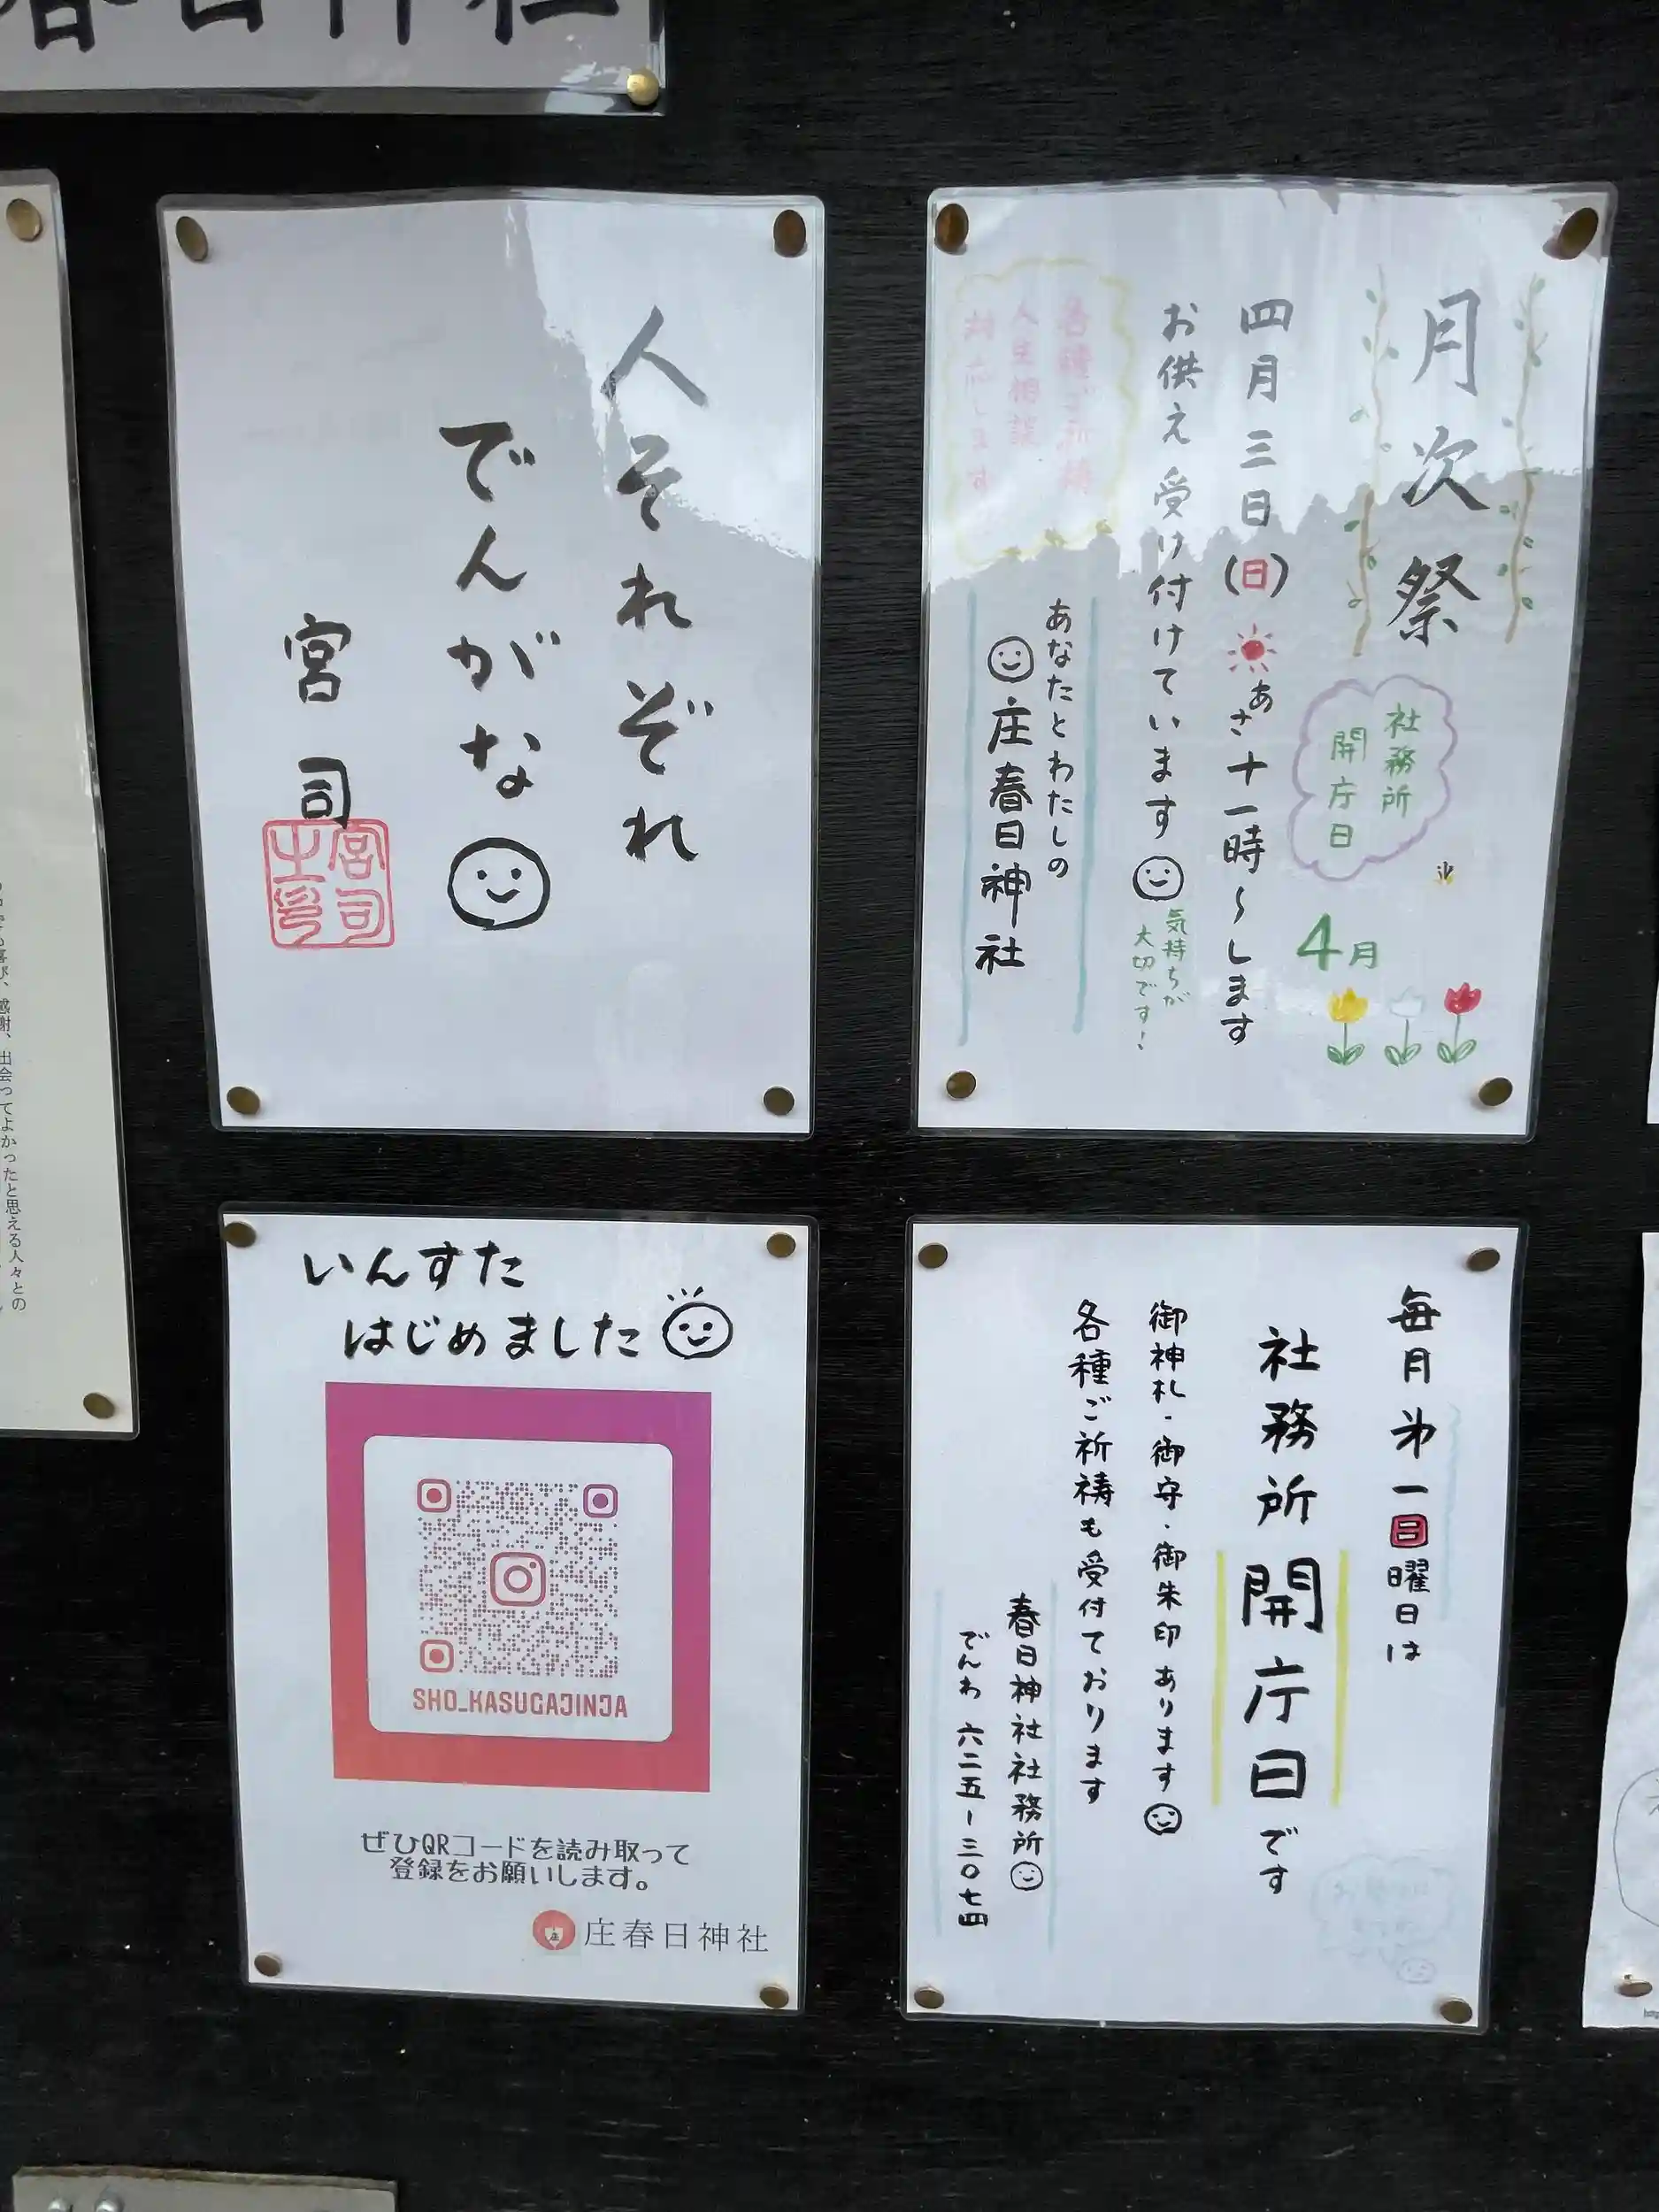 春日神社
月次祭
社務所
開庁日
4月
四月三日(日)あさ十一時〜します
お供え受け付けています
気持ちが
大切です!
各種ご祈祷
人生相談
対応します
あなたとわたしの
庄春日神社
人それぞれ
でんがな
宮司
宮司
之印
毎月第一日曜日は
社務所開庁日です
御神札・御守・御朱印あります
各種ご祈祷も受付ております
春日神社社務所
でんわ 六二五-三〇七四
いんすた
はじめました
SHO_KASUGAJINJA
ぜひQRコードを読み取って
登録をお願いします。
庄春日神社
感謝、出会ってよかったと思える人々との